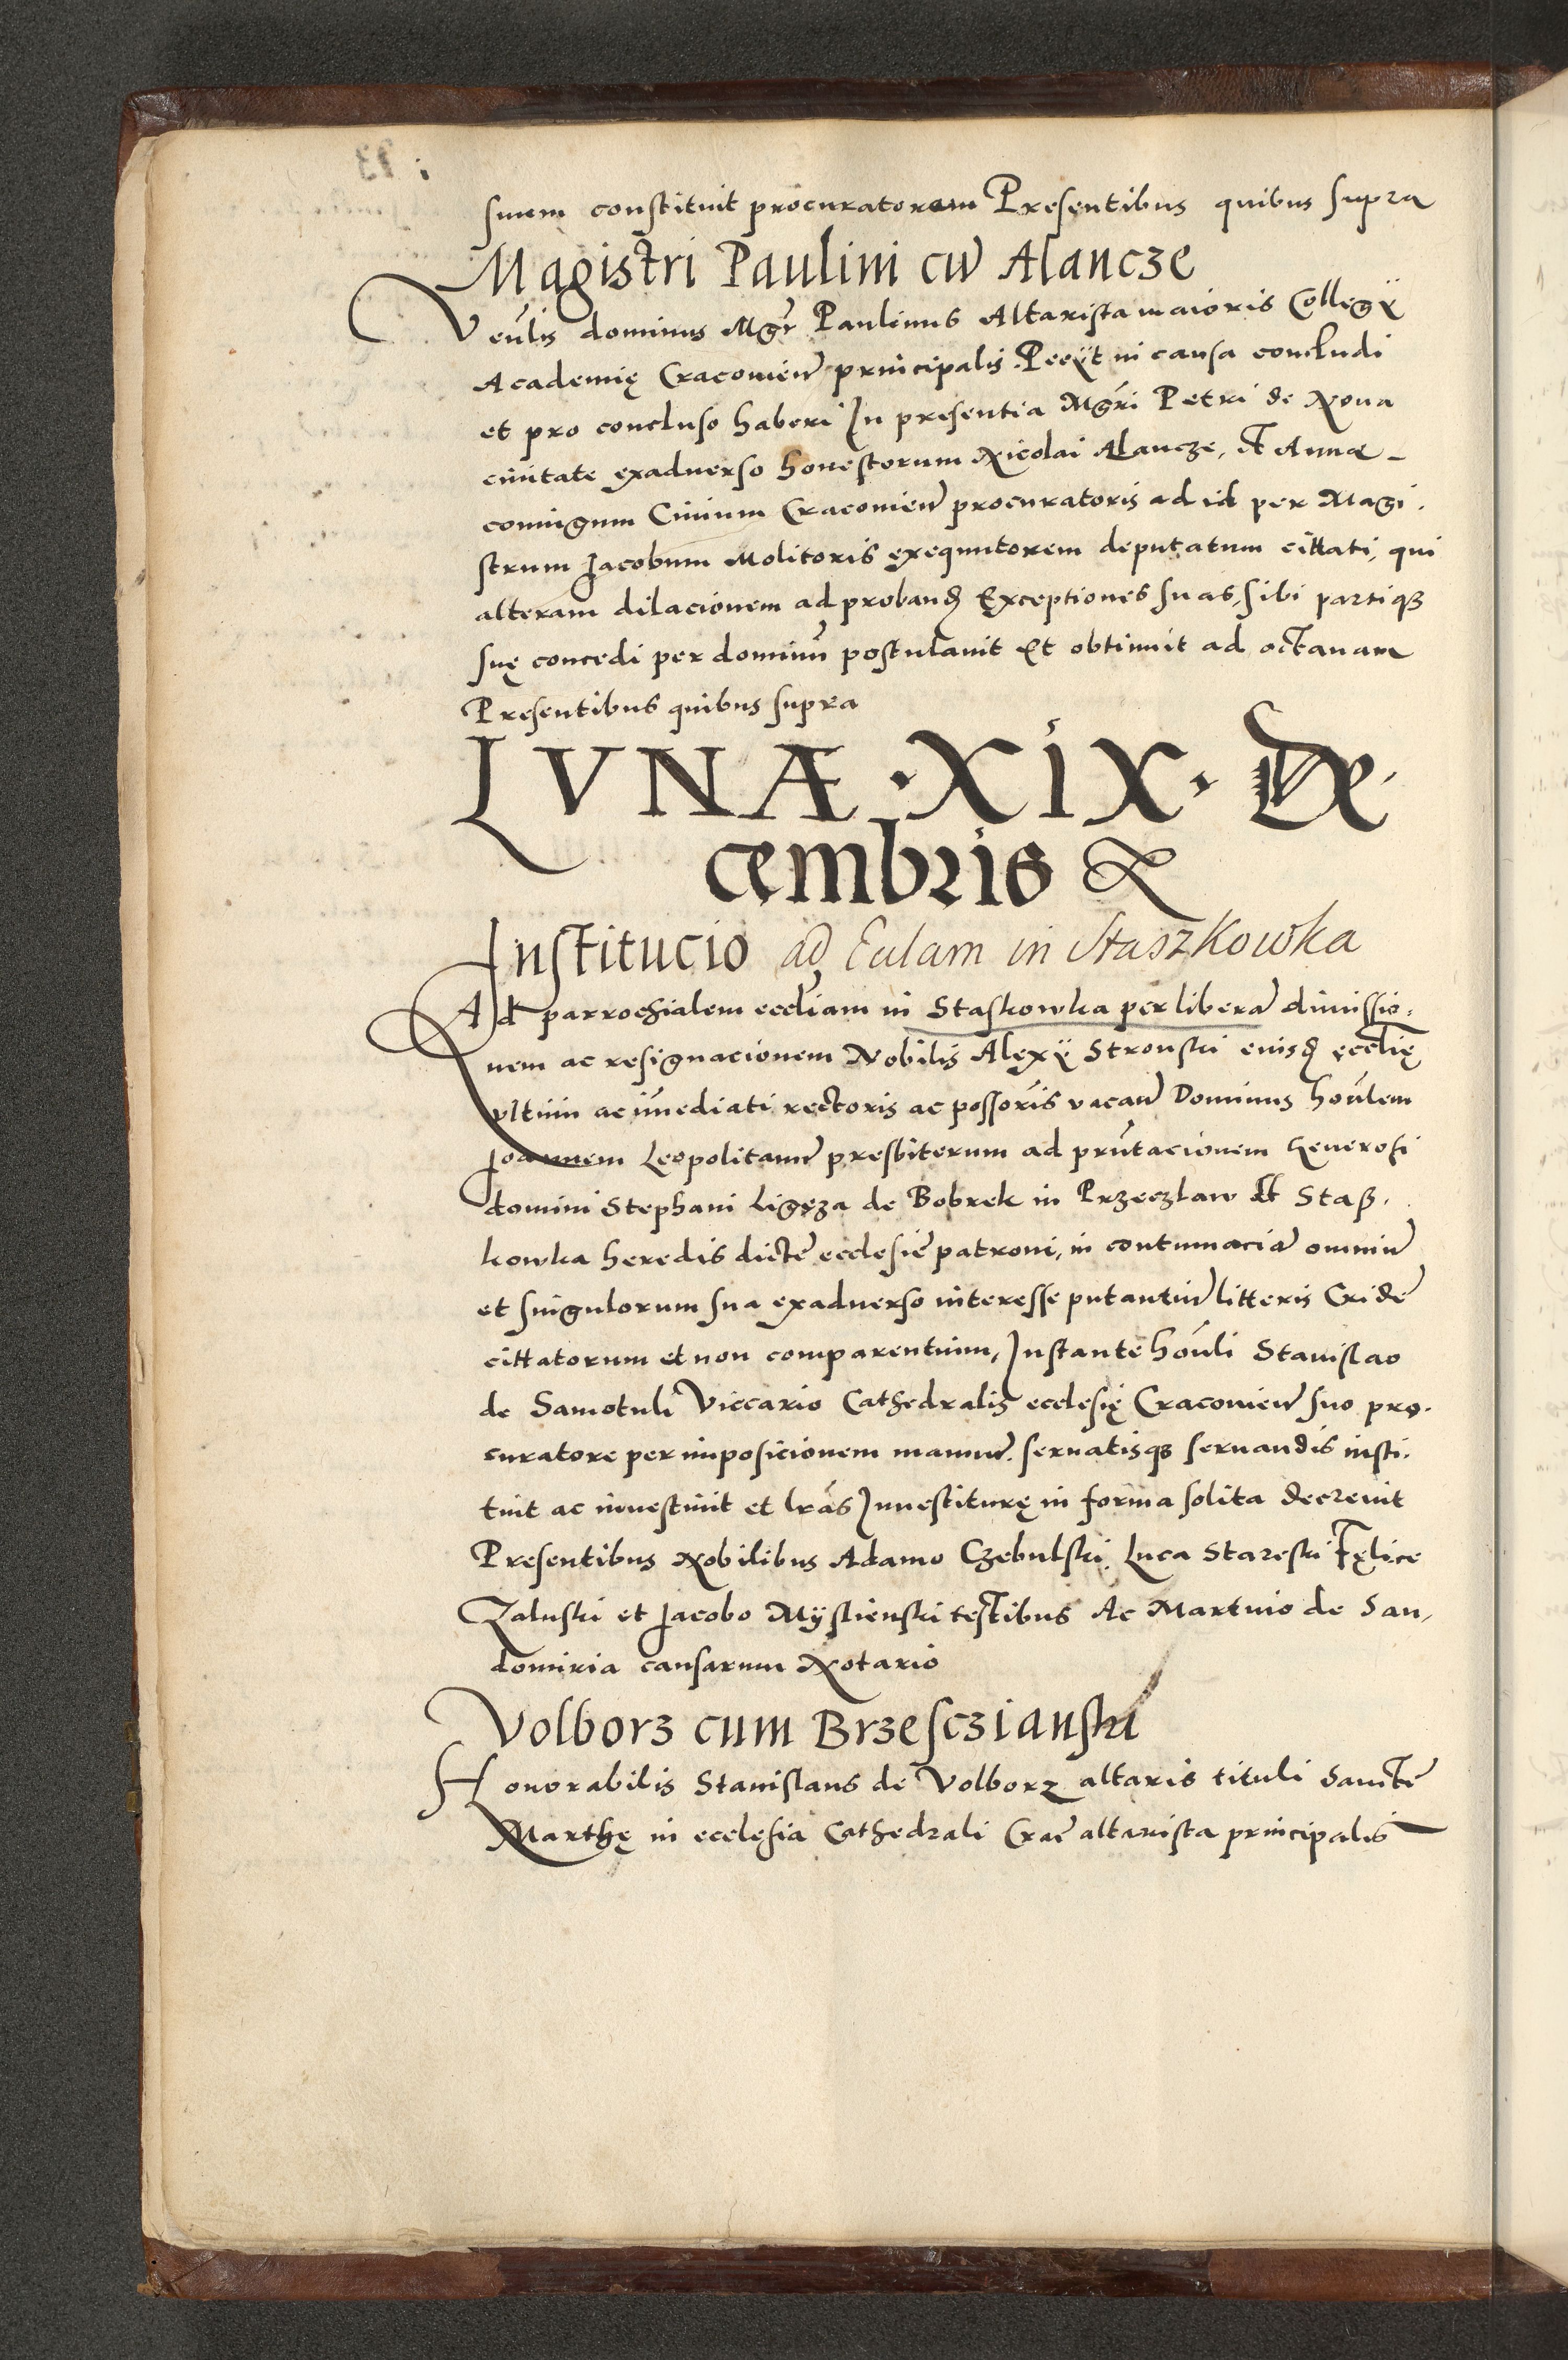 suum constituit procuratorem Presentibus quibus supra
Magistri Paulini cū Alancze
Venlis dominus Mgr Paulinus Altarista maioris Collegÿ
Academię Cracovien principalis. Petÿt in causa concludi
et pro concluso haberi In presentia Mgri Petri de Nova
civitate exadverso honestorum Nicolai Alancze, Et Annae
coniugum Civium Cracovien procuratoris ad id per Magi.
strum Jacobum Molitoris exequutorem deputatum cittati, qui
alteram dilacionem ad proband Exceptiones suas, sibi partiqȝ
suę concedi per dominū postulavit Et obtinuit ad octavam
Presentibus quibus supra
LVNÆ · XIX · De
cembris &
Institucio ad Eccłam in Staszkowka
Ad parrochialem eccliam in Staskowka per liberā dimissio.
nem ac resignacionem Nobilis Alexÿ Stronski eiusd ecclię
ultimi ac imediati rectoris ac possoris vacan Dominus honlem
Joannem Leopolitanū presbiterum ad prntacionem Generosi
domini Stephani Ligęza de Bobrek in Przeczlaw Et Staß.
kowka heredis dictę ecclesię patroni, in contumaciā omniū
et singulorum sua exadverso interesse putantiū litteris Cridę
cittatorum et non comparentium, Instante honli Stanislao
de Samotuli Viccario Cathedralis ecclesię Cracovien suo pro.
curatore per imposicionem manuū. servatisqȝ servandis insti.
tuit ac investivit et lras Investiturę in forma solita decrevit
Presentibus Nobilibus Adamo Czebulski, Luca Stareski Felice
Zaluski et Jacobo Mÿslienski testibus Ac Martino de San,
domiria causarum Notario
Volborz cum Brzesczianski
Honorabilis Stanislaus de Volborz altaris tituli Sanctę
Marthę in ecclesia Cathedrali Crac altarista principalis